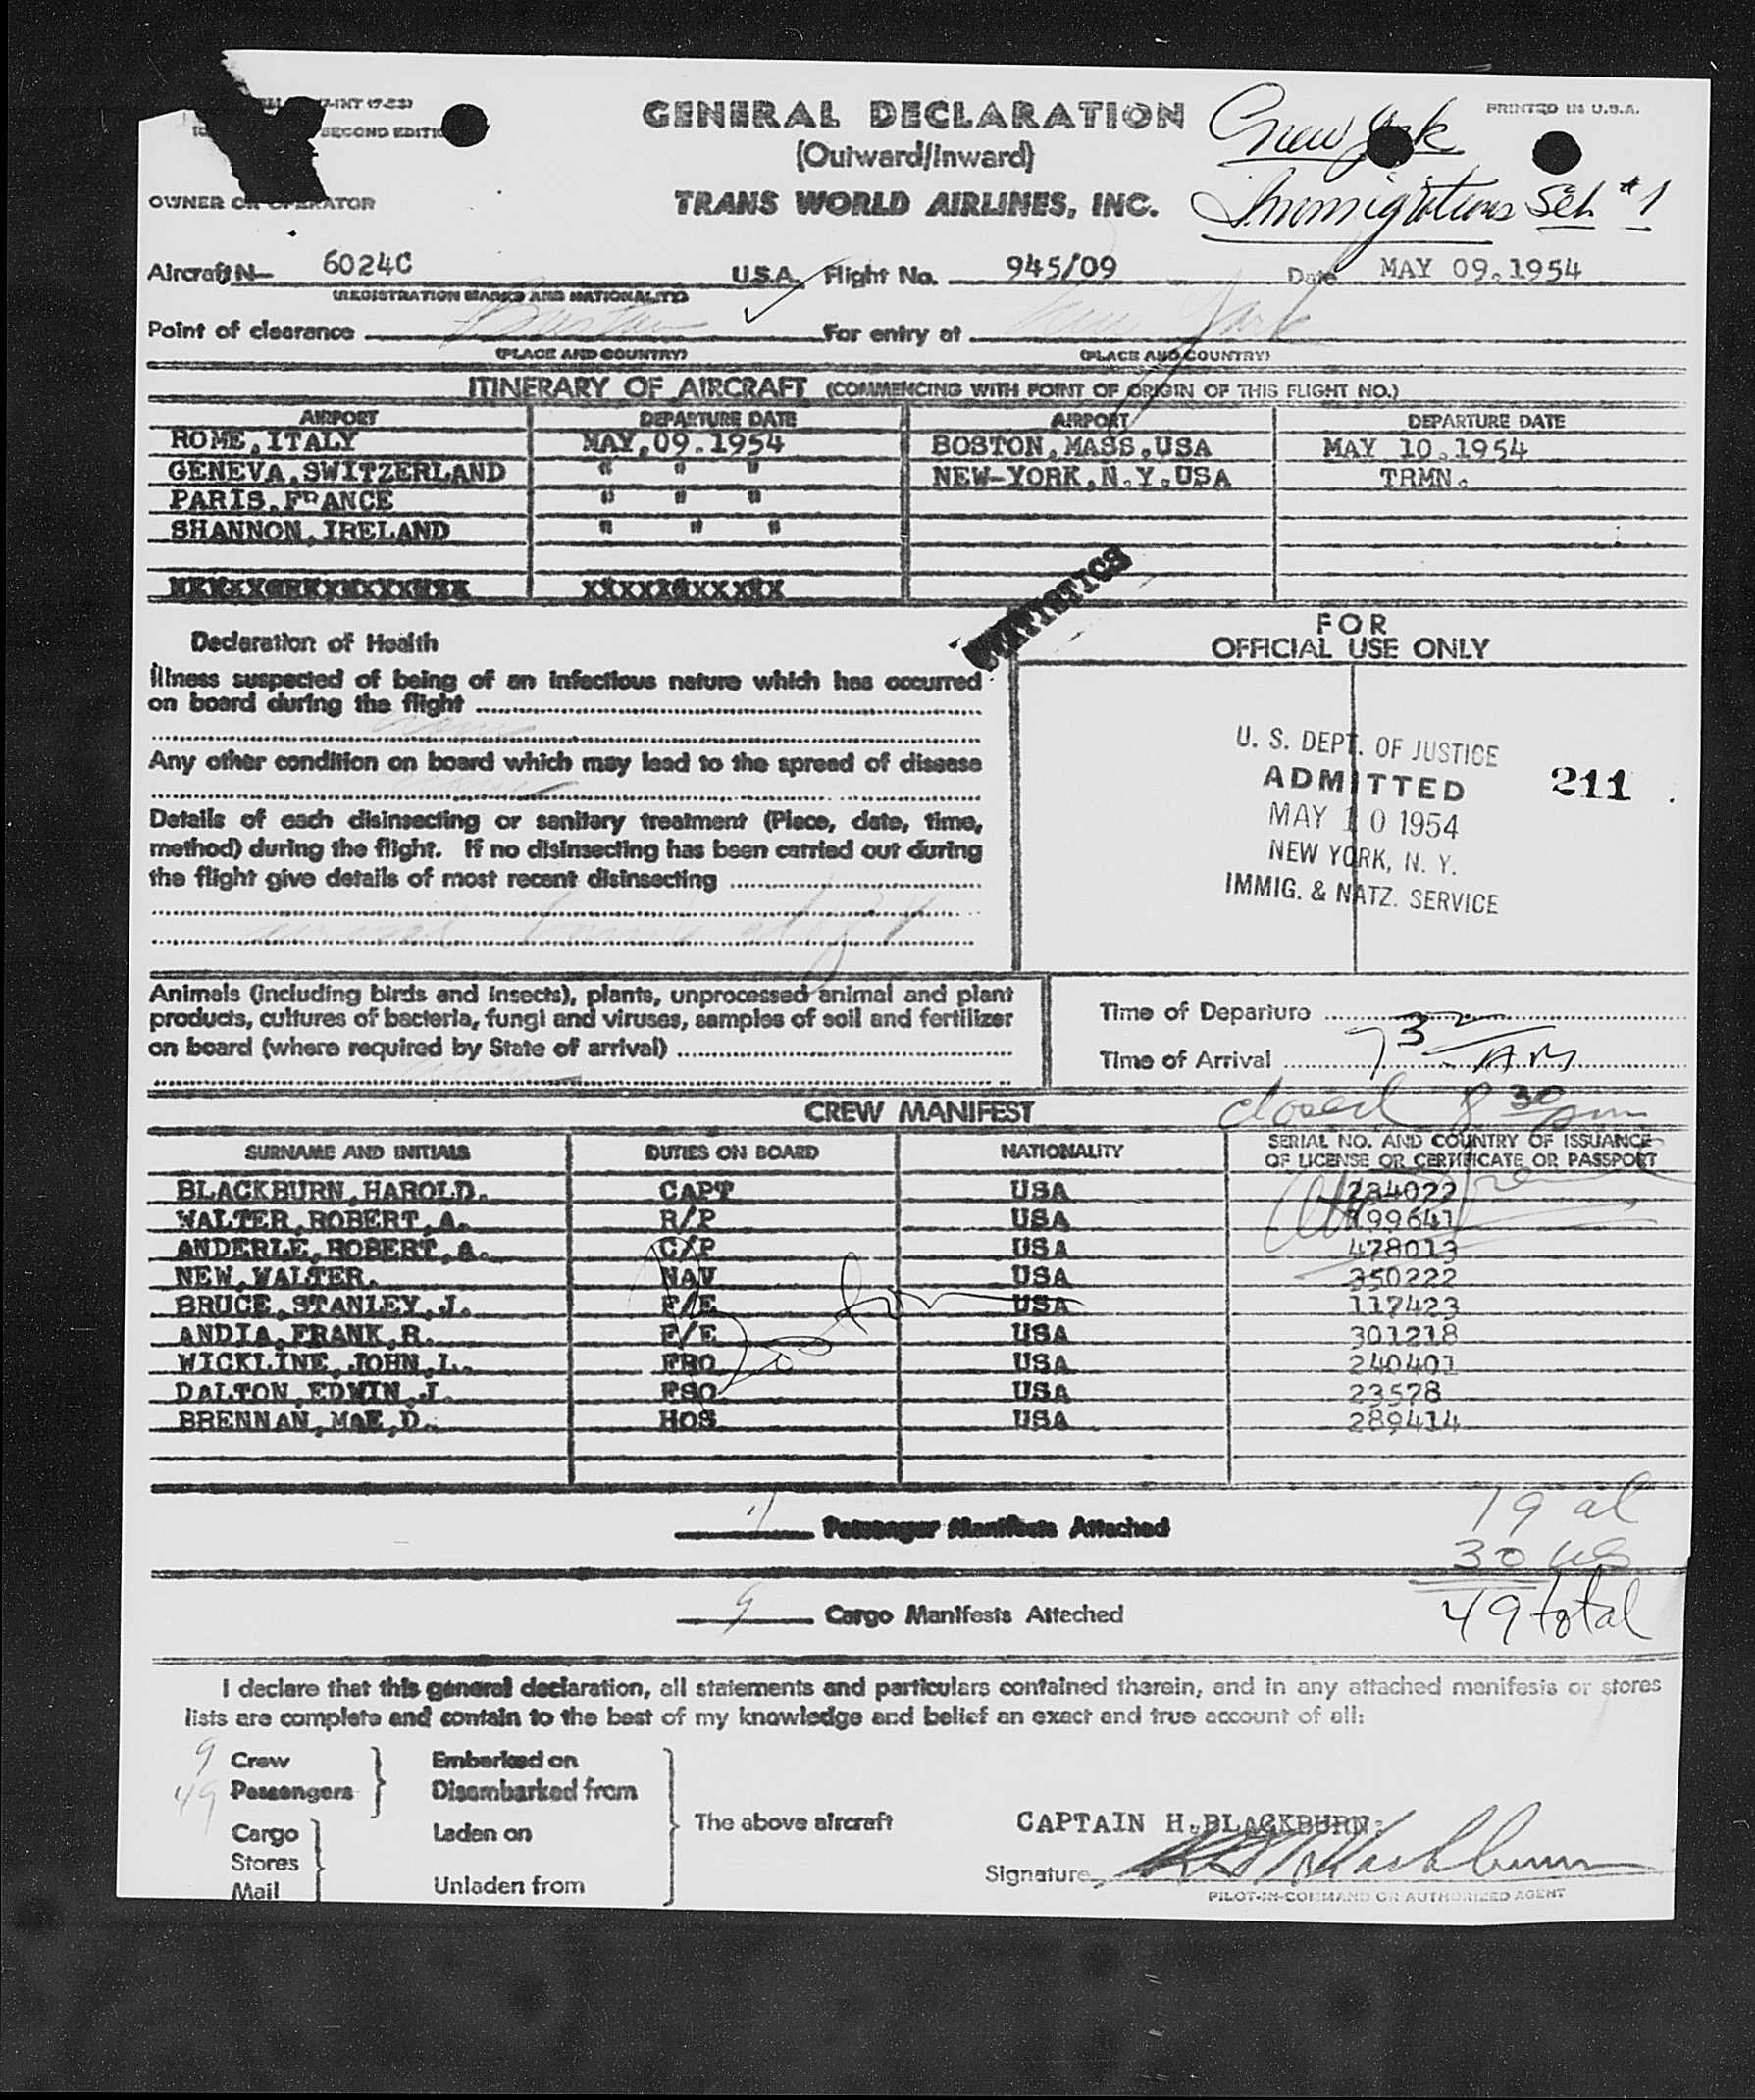 -INT (7-53)
SECOND EDITION
GENERAL DECLARATION
(Outward/Inward)
TRANS WORLD AIRLINES, INC.
PRINTED IN U.S.A.
New York
Immigrations Set #1
OWNER OR OPERATOR
Aircraft N- 6024C U.S.A. Flight No. 945/09 Date MAY 09.1954
(REGISTRATION MARKS AND NATIONALITY)
Point of clearance Boston For entry at New York
(PLACE AND COUNTRY) (PLACE AND COUNTRY)
ITINERARY OF AIRCRAFT (COMMENCING WITH POINT OF ORIGIN OF THIS FLIGHT NO.)
AIRPORT DEPARTURE DATE AIRPORT DEPARTURE DATE
ROME,ITALY MAY,09.1954 BOSTON,MASS,USA MAY 10.1954
GENEVA,SWITZERLAND " " " NEW-YORK,N.Y.USA TRMN.
PARIS,FRANCE " " "
SHANNON,IRELAND " " "
STATISTICS
Declaration of Health
Illness suspected of being of an infectious nature which has occurred
on board during the flight
none
Any other condition on board which may lead to the spread of disease
none
Details of each disinsecting or sanitary treatment (Place, date, time,
method) during the flight. If no disinsecting has been carried out during
the flight give details of most recent disinsecting
FOR
OFFICIAL USE ONLY
U. S. DEPT. OF JUSTICE
ADMITTED 211
MAY 10 1954
NEW YORK, N. Y.
IMMIG. & NATZ. SERVICE
Animals (including birds and insects), plants, unprocessed animal and plant
products, cultures of bacteria, fungi and viruses, samples of soil and fertilizer
on board (where required by State of arrival)
none
Time of Departure
Time of Arrival 7 3 AM
closed 8 30 pm
CREW MANIFEST
SURNAME AND INITIALS DUTIES ON BOARD NATIONALITY SERIAL NO. AND COUNTRY OF ISSUANCE
OF LICENSE OR CERTIFICATE OR PASSPORT
BLACKBURN,HAROLD. CAPT USA 284022
WALTER,ROBERT,A. R/P USA 199641
ANDERLE,ROBERT,A. C/P USA 478013
NEW,WALTER. NAV USA 350222
BRUCE,STANLEY,J. F/E USA 117423
ANDIA,FRANK,R. F/E USA 301218
WICKLINE,JOHN,L. FRO USA 240401
DALTON,EDWIN,J. FSO USA 23578
BRENNAN,MAE,D. HOS USA 289414
Passenger Manifests Attached
19 al
30 us
49 total
9 Cargo Manifests Attached
I declare that this general declaration, all statements and particulars contained therein, and in any attached manifests or stores
lists are complete and contain to the best of my knowledge and belief an exact and true account of all:
9 Crew Embarked on
49 Passengers Disembarked from
The above aircraft
Cargo Laden on
Stores
Mail Unladen from
CAPTAIN H.BLACKBURN.
Signature H Blackburn
PILOT-IN-COMMAND OR AUTHORIZED AGENT